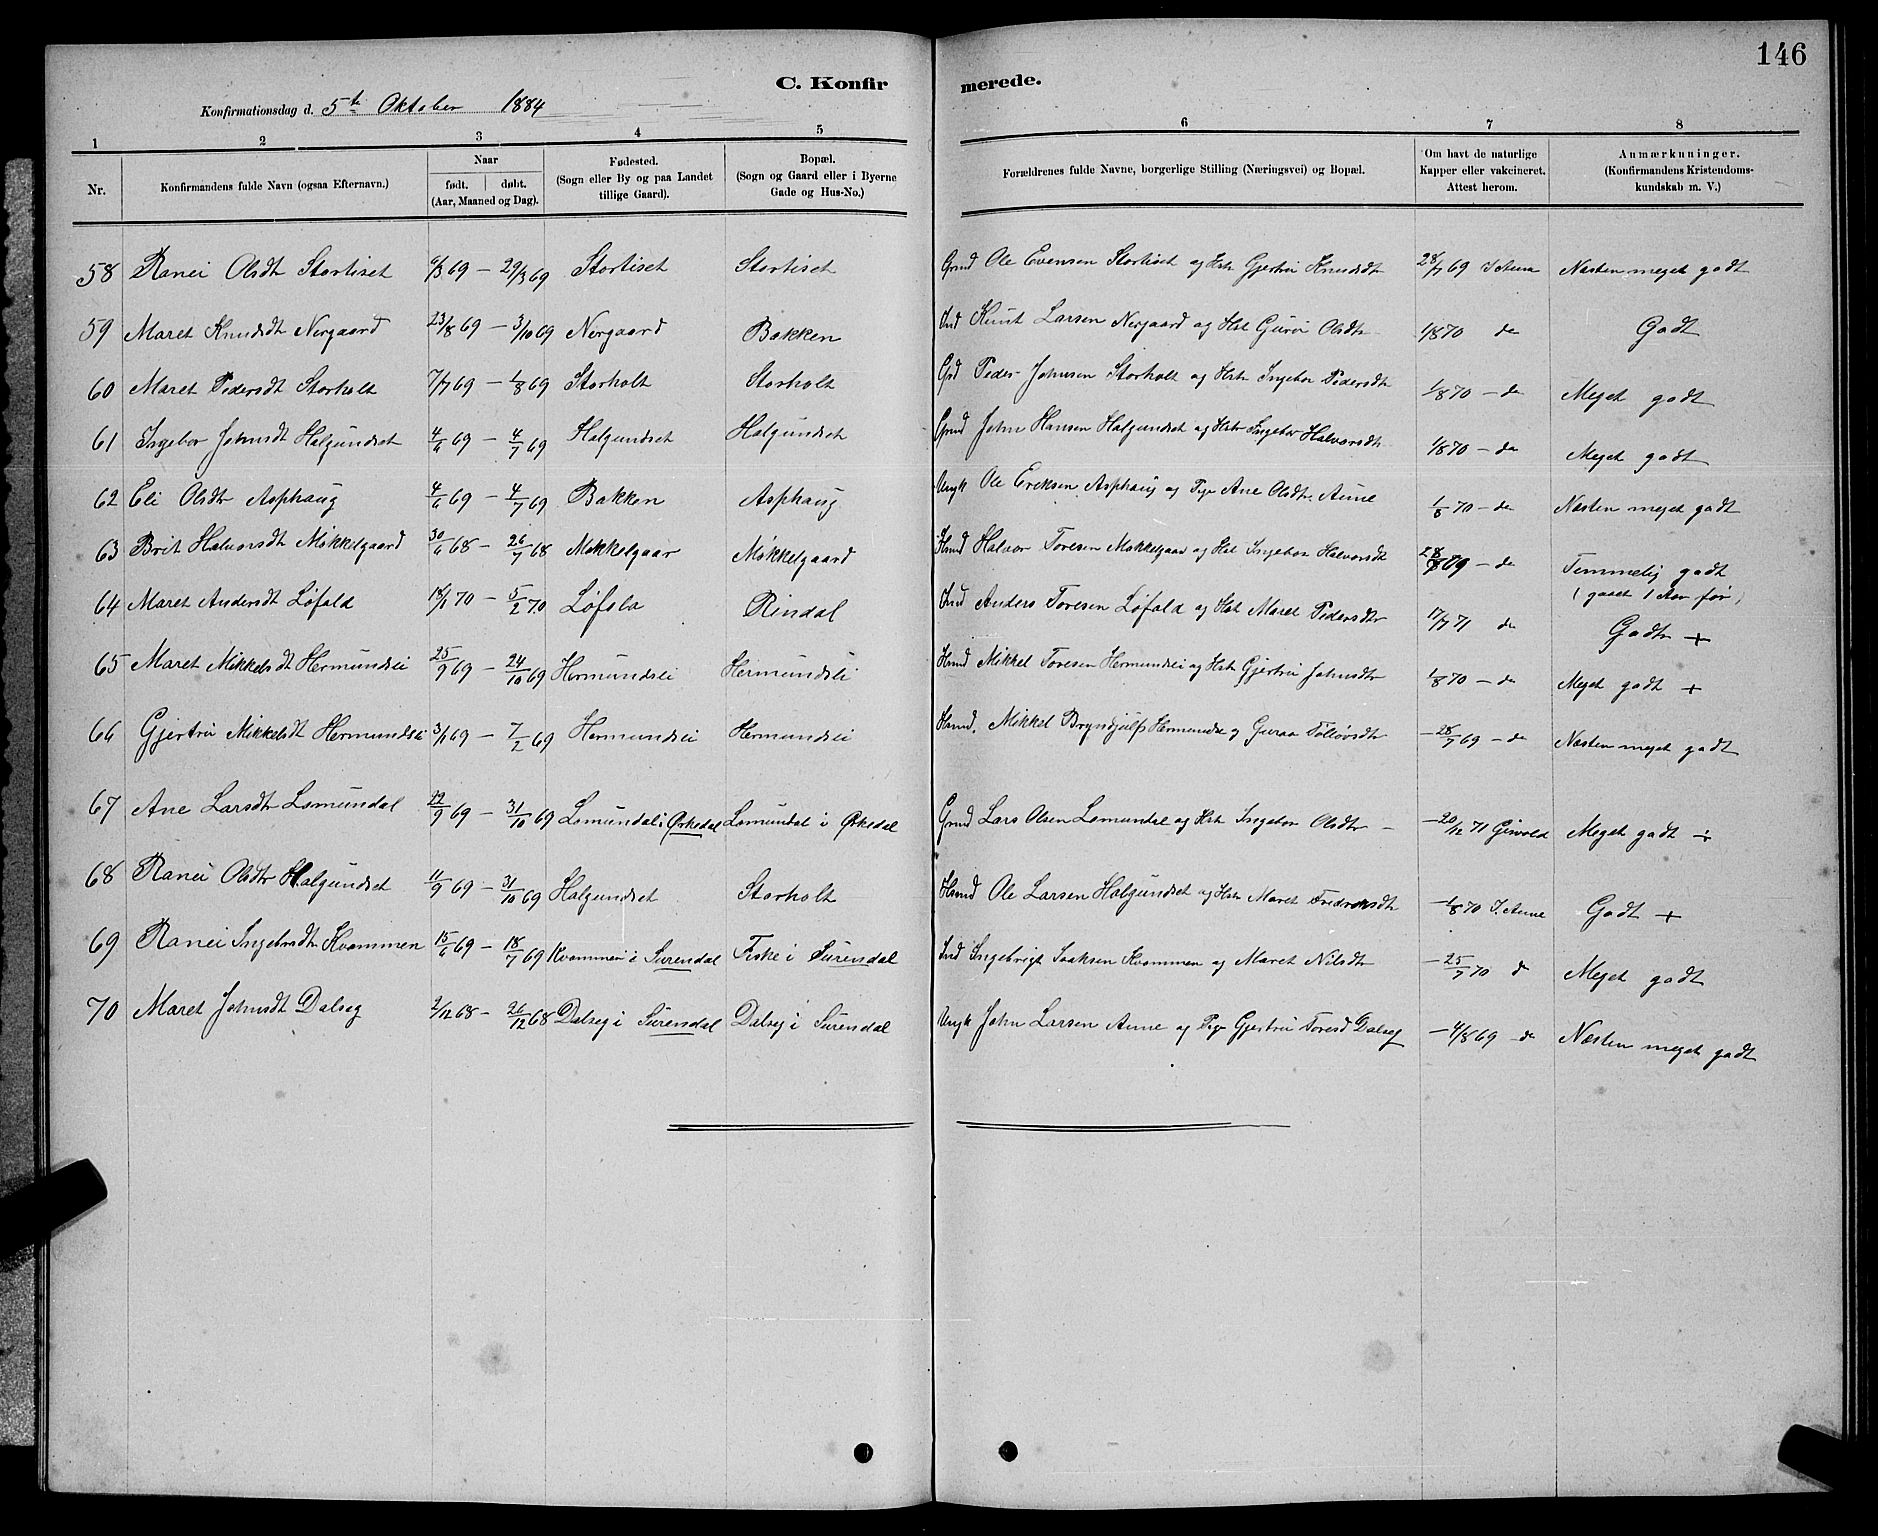 146
C. Konfirmerede.
Konfirmationsdag d. 5te Oktober 1884
1 2 3 4 5 6 7 8
Nr. Konfirmandens fulde Navn (ogsaa Efternavn.) Naar født. døbt. (Aar, Maaned og Dag). Fødested. (Sogn eller By og paa Landet tillige Gaard). Bopæl. (Sogn og Gaard eller i Byerne Gade og Hus-No.) Forældrenes fulde Navne, borgerlige Stilling (Næringsvei) og Bopæl. Om havt de naturlige Kapper eller vakcineret. Attest herom. Anmærkninger. (Konfirmandens Kristendomskundskab m. V.)
58 Ranei Olsdt Stortiset 6/3 69 — 29/3 69 Stortiset Stortiset Grmd Ole Evensen Stortiset og Hst Gjertru Knudsdt 28/7 69 J Aune Næsten meget godt
59 Maret Knudsdt Nergaard 23/8 69 — 3/10 69 Nergaard Bakken Ind Knut Larsen Nergaard og Hst Guroi Olsdtr 1/8 70 do Godt
60 Maret Pedersdt Storholt 7/7 69 — 1/8 69 Storholt Storholt Peder Johnsen Storholt og Hstr Ingebor Pedersdtr 1/8 70 — do Meget godt
61 Ingebor Johnsdt Halgundset 4/6 69 — 4/7 69 Halgundset Halgundset Grmd John Hansen Halgundset og Hstr Ingebor Halvorsdt 1/8 70 — do Meget godt
62 Eli Olsdtr Asphaug 4/6 69 — 4/7 69 Bakken Asphaug Ungk Ole Eriksen Asphaug og Pige Ane Olsdtr Aune 1/8 70 — do Næsten meget godt
63 Brit Halvorsdt Møkkelgaard 30/6 68 — 26/7 68 Møkkelgaar Møkkelgaard Hsmd Halvor Toresen Møkkelgaar og Hst Ingebor Halvorsdt 28/7 69 — do Temmelig godt
(gaaet 1 Aar før)
64 Maret Andersdt Løfald 18/1 70 — 5/2 70 Løfsla Rindal Ind Anders Toresen Løfald og Hst Maret Pedersdtr 17/7 71 do Godt +
65 Maret Mikkelsdt Hermundslei 25/9 69 — 24/10 69 Hermundslei Hermundsli Hsmd Mikkel Toresen Hermundslei og Hstr Gjertru Johnsdtr 1/8 70 — do Meget godt +
66 Gjertru Mikkelsdt Hermundsli 3/1 69 — 7/2 69 Hermundslei Hermundslei Hsmd. Mikkel Bryndjulfs Hermundsl og Guraa Tolløvsdtr — 28/7 69 — do Næsten meget godt
67 Ane Larsdtr Lomundal 22/9 69 — 31/10 69 Lomundal i Orkedal Lomundal i Orkedal Grmd Lars Olsen Lomundal og Hstr Ingebor Olsdtr — — 20/12 71 Gisvold Meget godt +
68 Ranei Olsdtr Halgundset 11/9 69 — 31/10 69 Halgundset Storholt Hsmd Ole Larsen Halgundset og Hstr Maret Fredriksdtr — 1/8 70 J. Aune Godt +
69 Ranei Ingebrsdtr Kvammen 15/6 69 — 18/7 69 Kvammen i Surendal Fiske i Surendal Ind Ingebrigt Isaksen Kvammen og Maret Nilsdtr — 25/7 70 d Meget godt
70 Maret Johnsdt Dalseg 2/12 68 — 26/12 68 Dalseg i Surendal Dalseg i Surendal Ungk John Larsen Aune og Pige Gjertru Toresd Dalseg — 4/8 69 — do Næsten meget godt